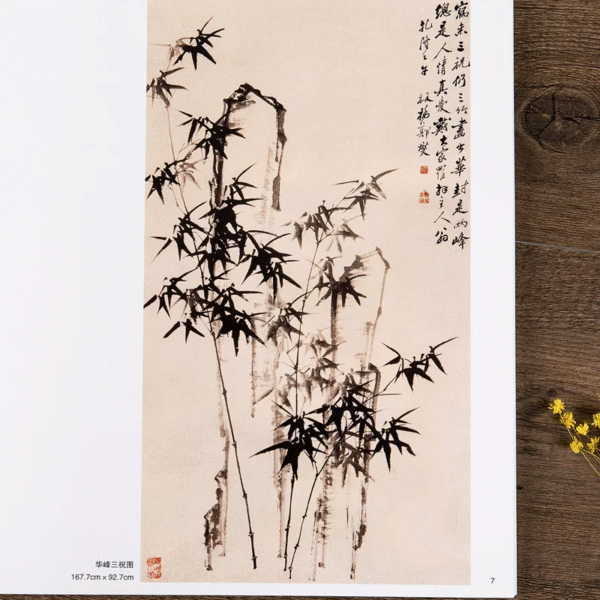 寫來三祝仍三竹畫出華封是兩峰
總是人情真愛戴大家羅拜主人翁
乾隆壬午 板橋鄭燮
华峰三祝图
167.7cm × 92.7cm
7